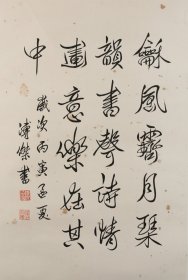 龢風霽月琴
韻書聲詩情
畫意樂在其
中
歲次丙寅孟夏
溥傑書